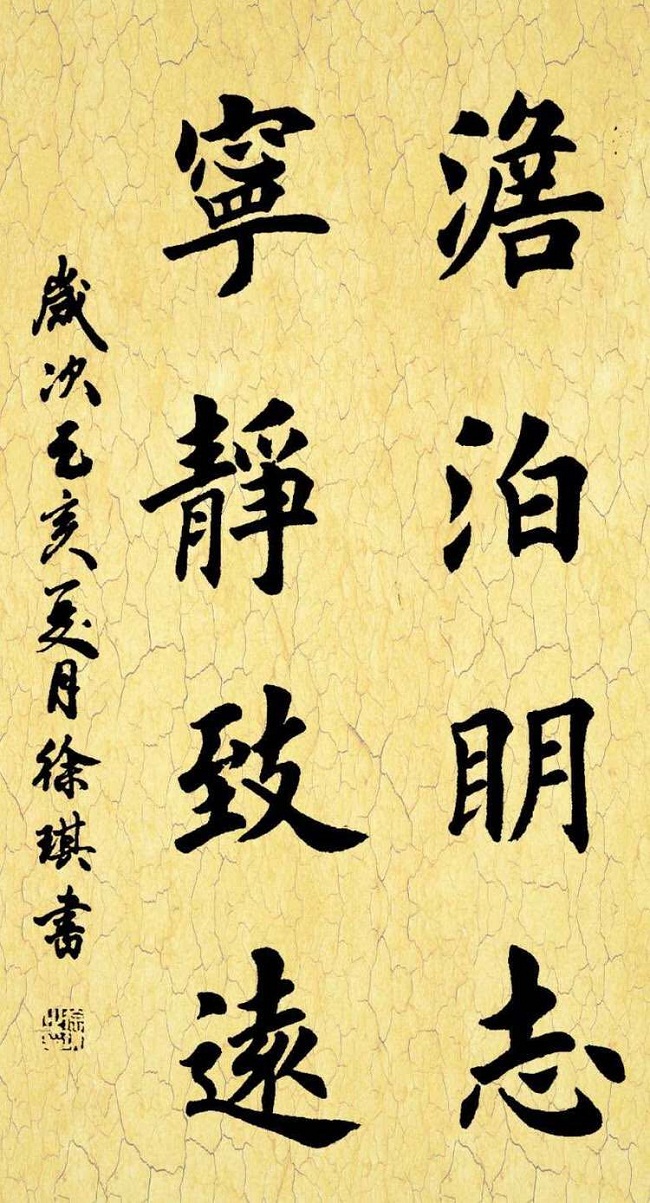 澹泊明志
寧靜致遠
歲次己亥夏月徐琪書